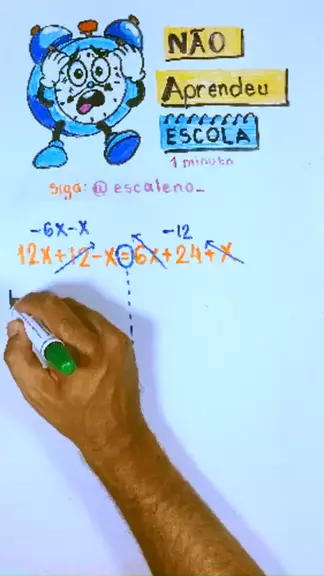 NÃO
Aprendeu
ESCOLA
1 minuto
Siga: @escaleno_
-6x-x -12
12x+12-x=6x+24+x